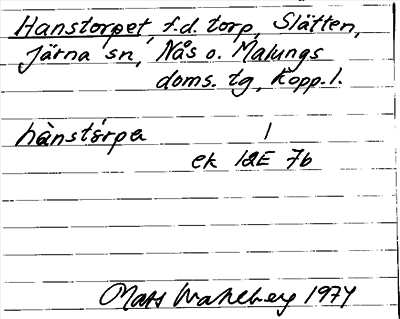 Hanstorpet, f.d. torp, Slätten,
Järna sn, Nås o. Malungs
doms. tg, Kopp. l.
hànstórpa 1
ek 12E 7b
Mats Wahlberg 1974